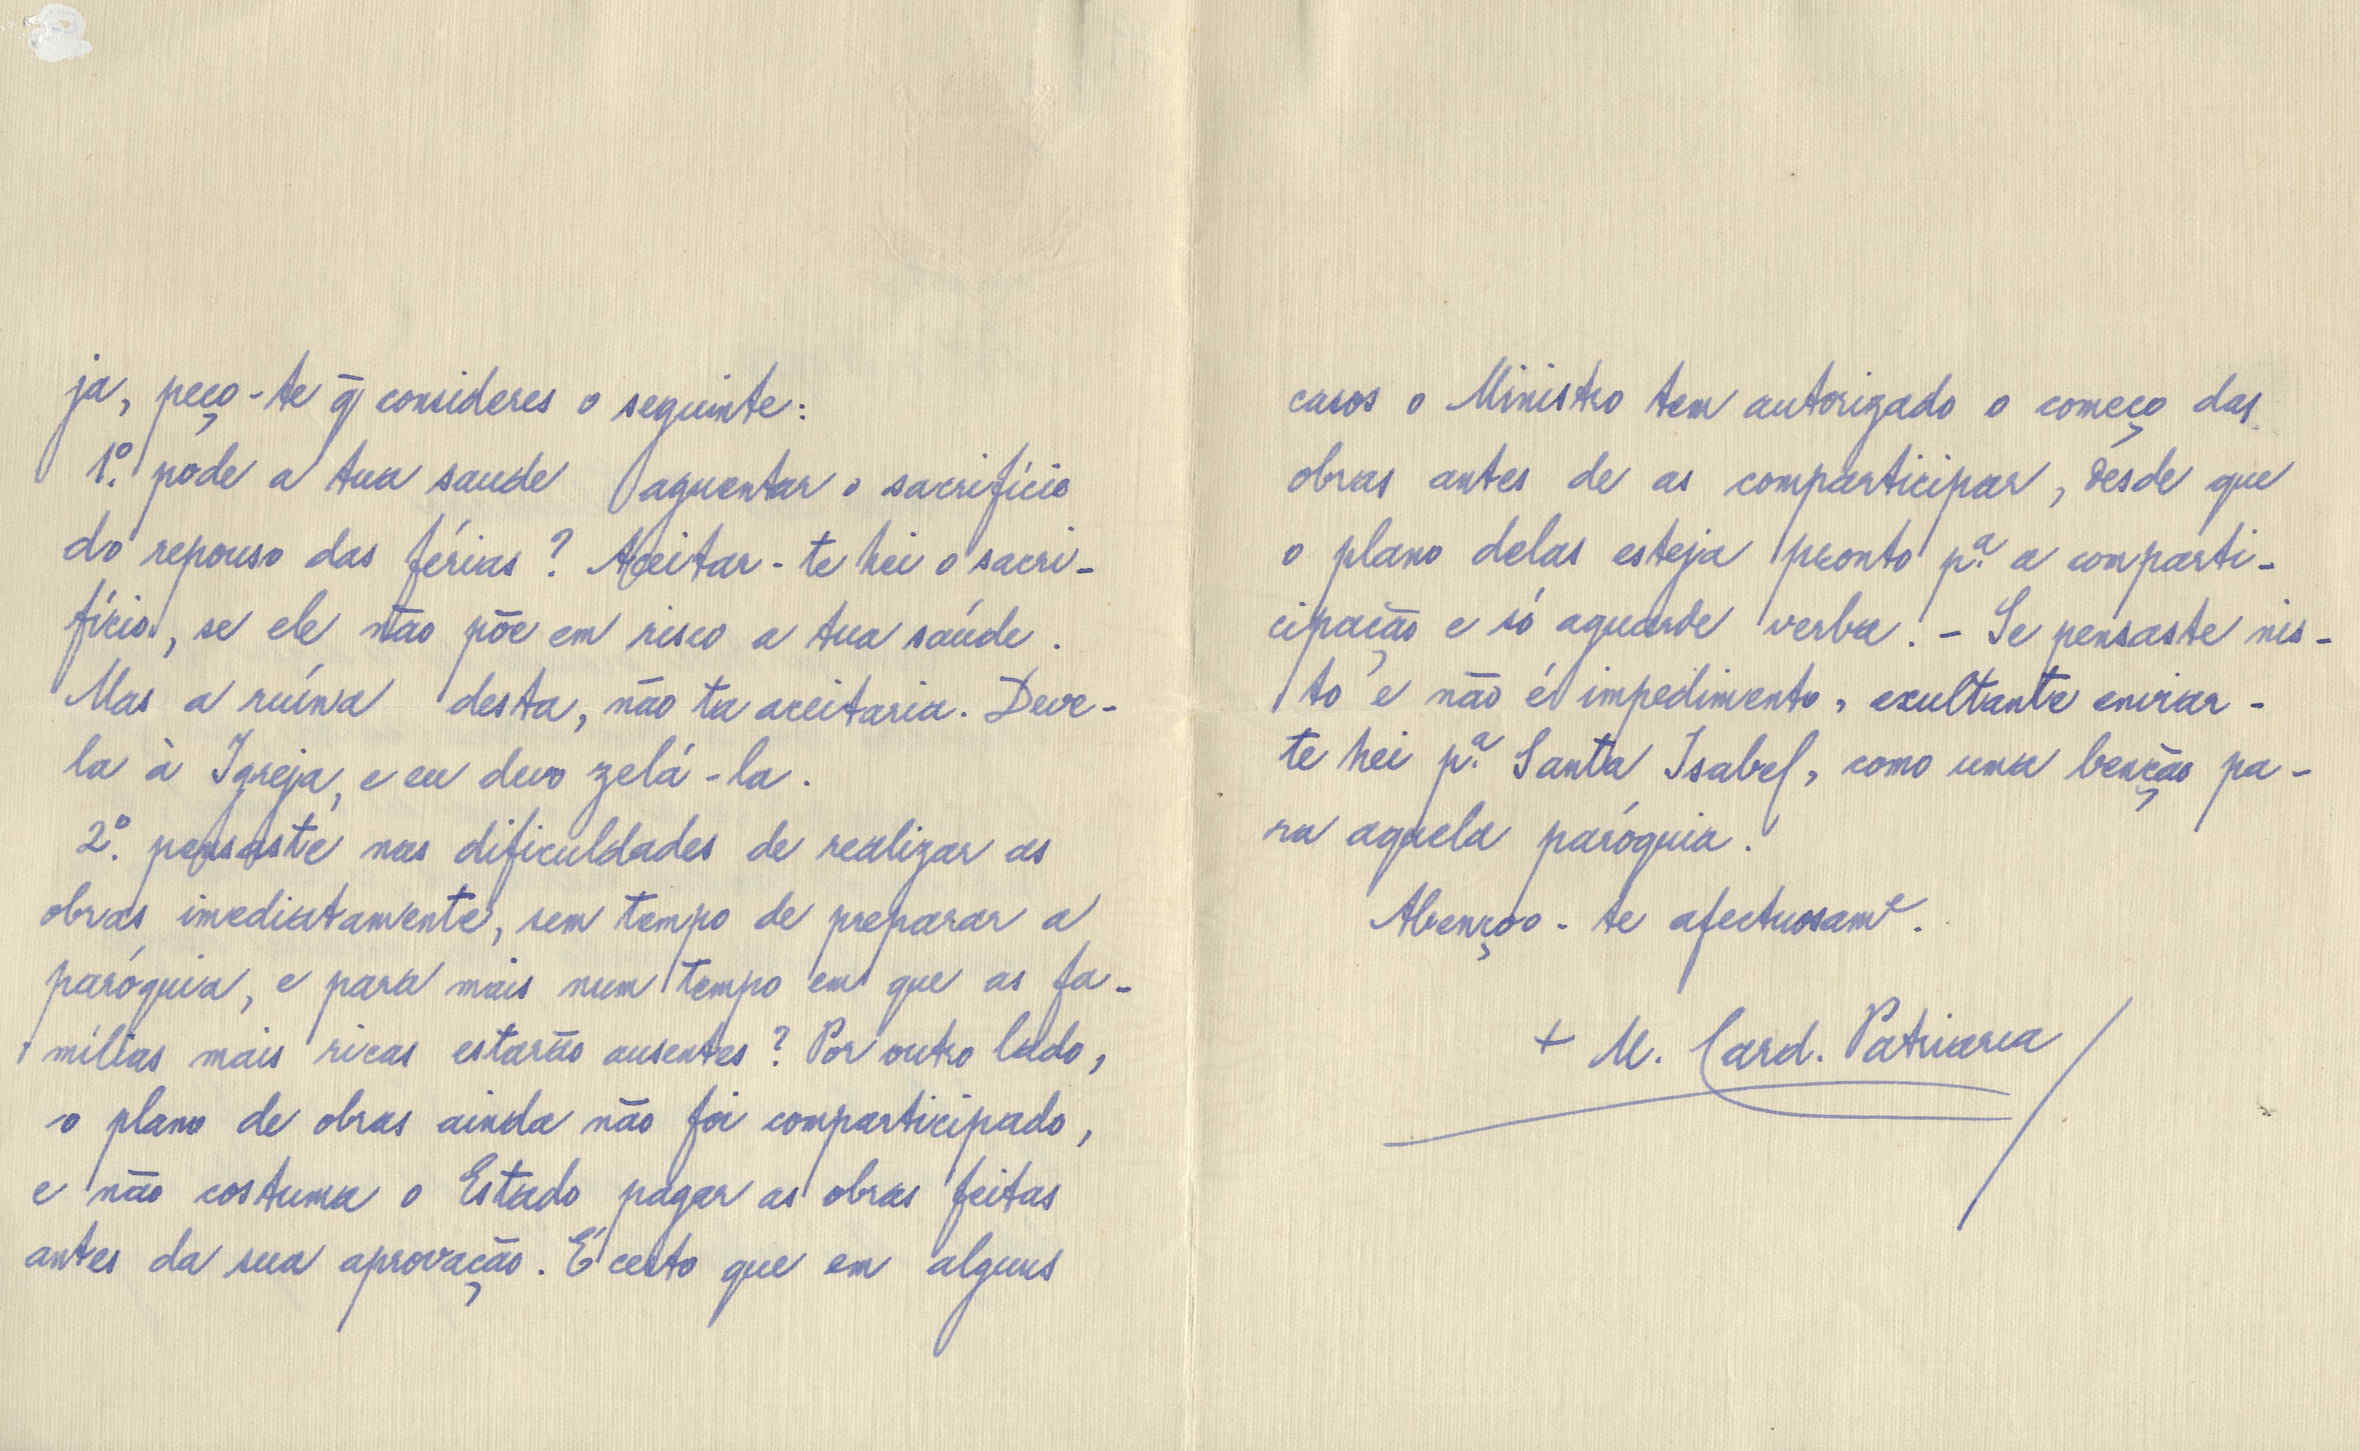 ja, peço-te q̄ consideres o seguinte:
1º. pode a tua saude aguentar o sacrifício
do repouso das férias? Aceitar-te hei o sacri-
fício, se ele não põe em risco a tua saúde.
Mas a ruína desta, não ta aceitaria. Deve-
la à Igreja, e eu devo zelá-la.
2º. pensaste nas dificuldades de realizar as
obras imediatamente, sem tempo de preparar a
paróquia, e para mais num tempo em que as fa-
mílias mais ricas estarão ausentes? Por outro lado,
o plano de obras ainda não foi comparticipado,
e não costuma o Estado pagar as obras feitas
antes da sua aprovação. É certo que em alguns
casos o Ministro tem autorizado o começo das
obras antes de as comparticipar, desde que
o plano delas esteja pronto pª. a comparti-
cipação e só aguarde verba. - Se pensaste nis-
to e não é impedimento, exultante enviar-
te hei pª. Santa Isabel, como uma benção pa-
ra aquela paróquia.
Abençoo-te afectuosamᵉ.
+ M. Card. Patriarca